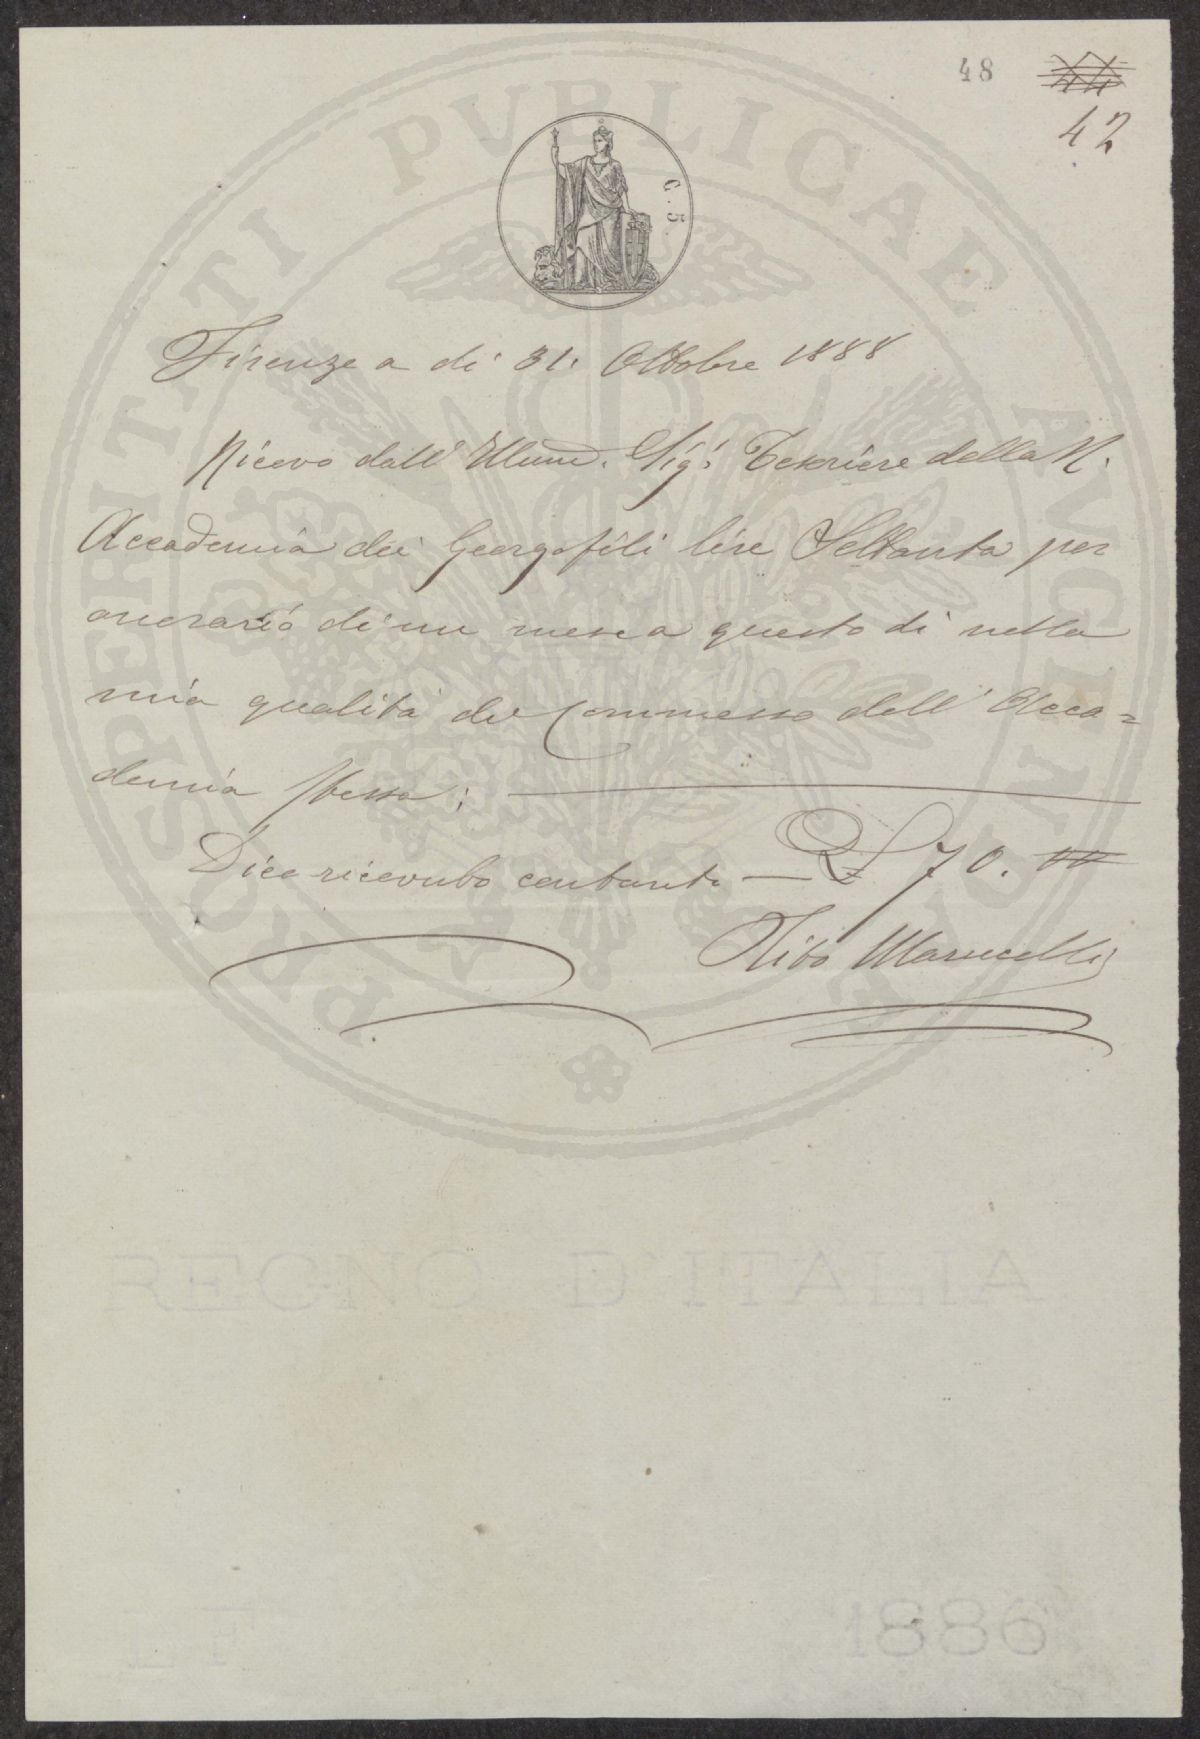 48
42
G. 5.
PROSPERITATI PVBLICAE AVGENDAE
Firenze a dì 31. Ottobre 1888
Ricevo dall' Illmo. Sigr. Tesoriere della R.
Accademia dei Georgofili lire Settanta per
onorario di un mese a questo dì nella
mia qualità di Commesso dell' Acca=
demia stessa;
Dico ricevuto contanti — £ 70.
Tito Marucelli
REGNO D'ITALIA
1886